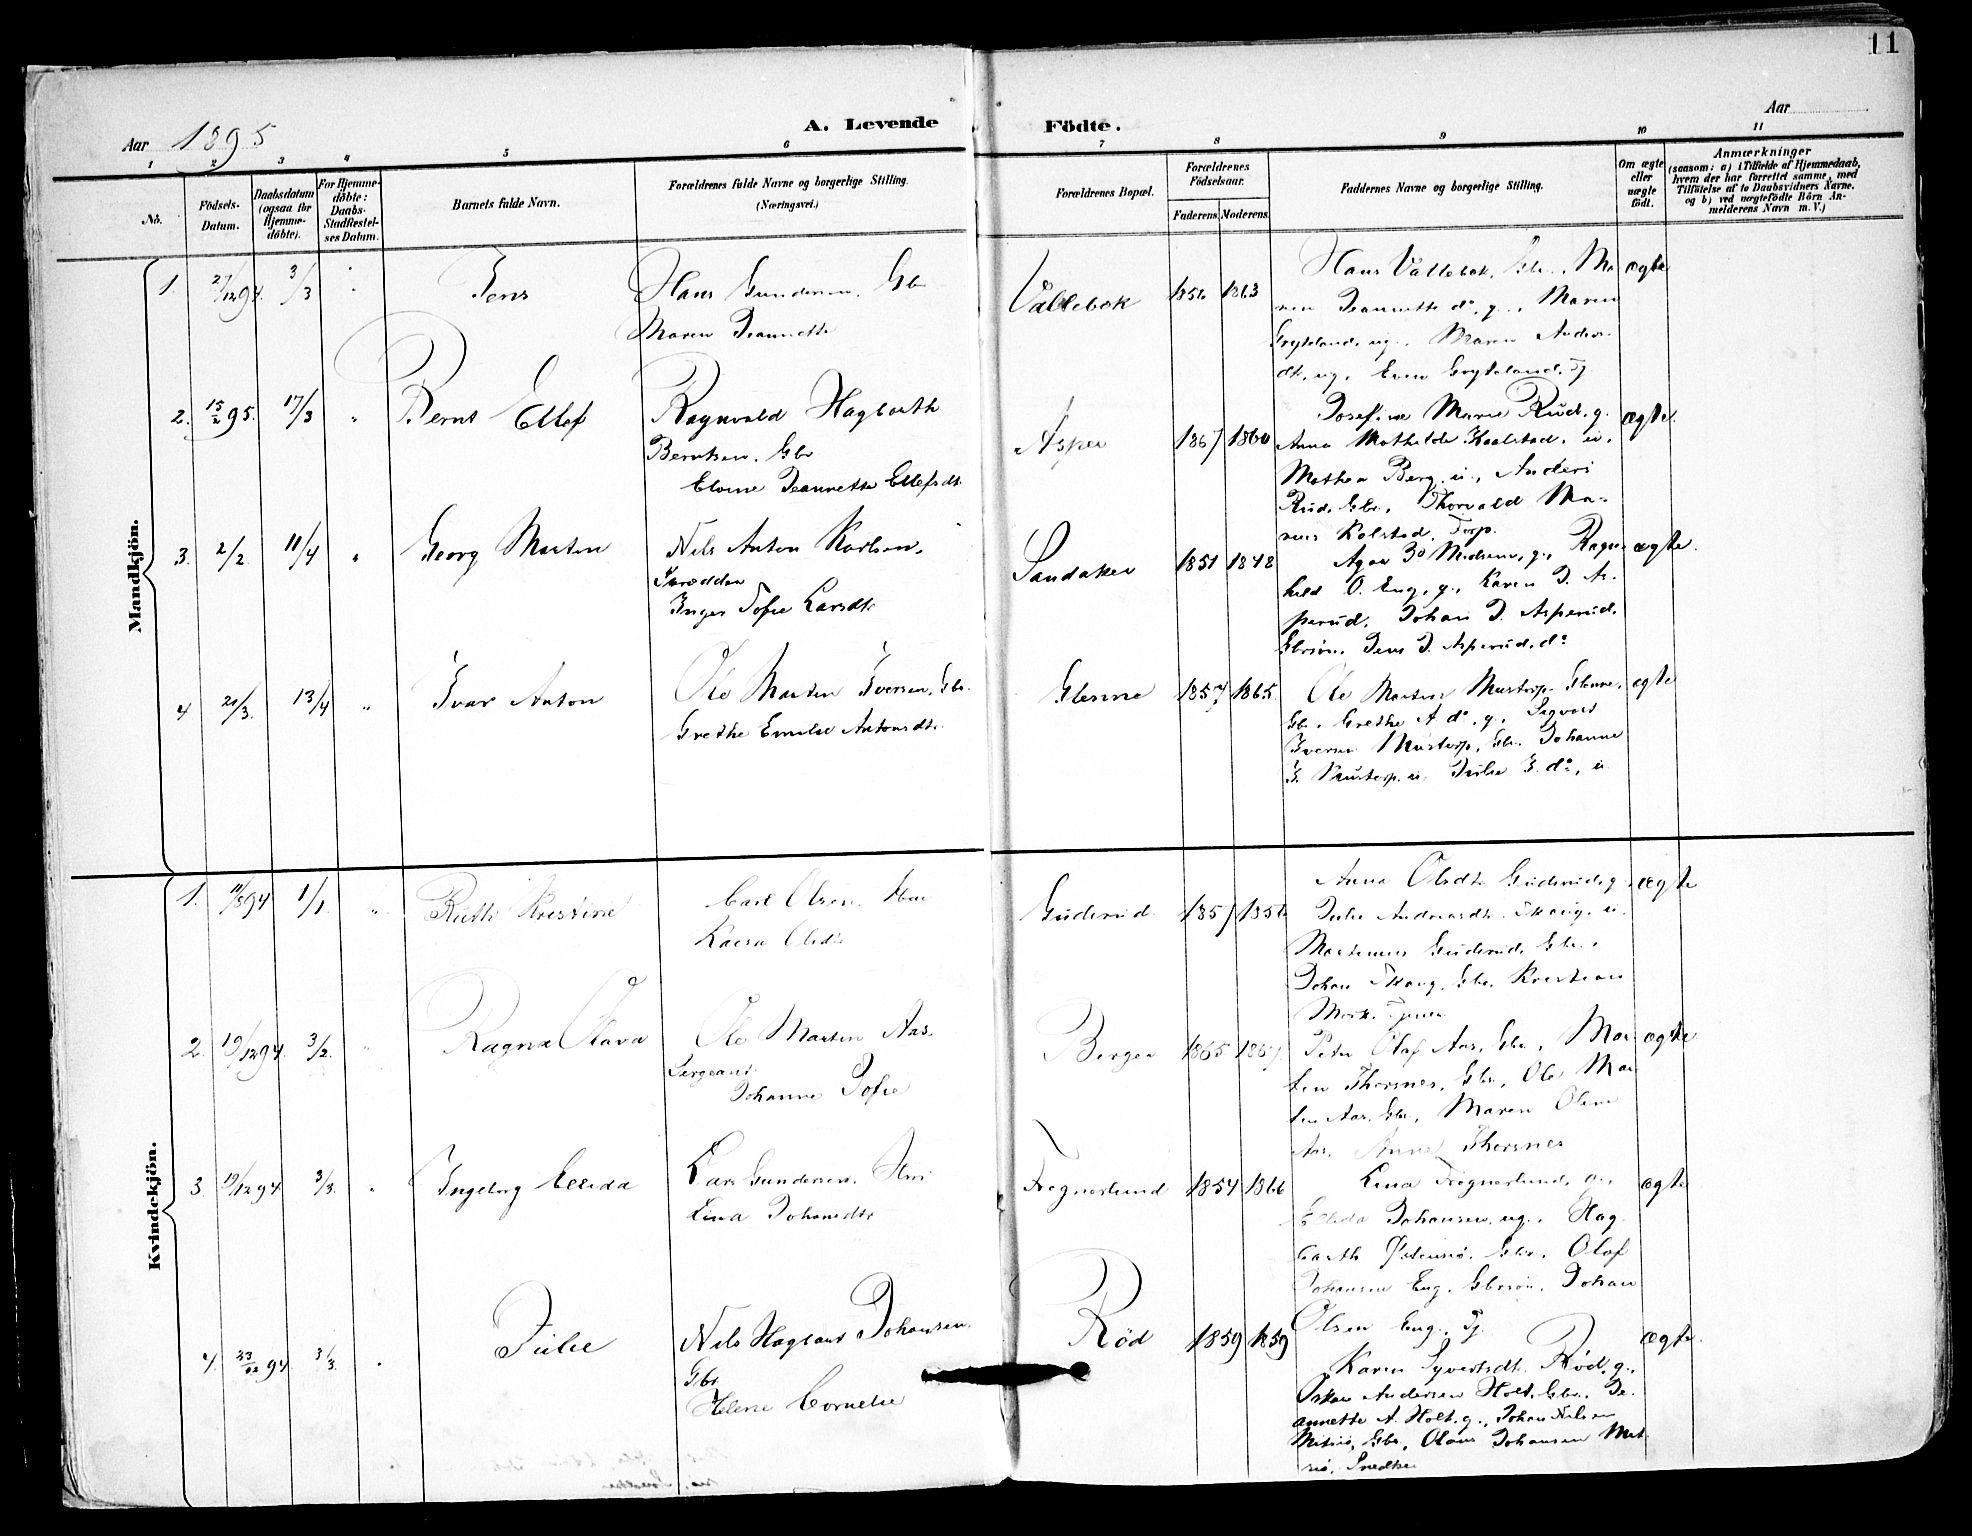 11
Aar 1895
A. Levende
Födte.
Aar
1 2 3 4 5 6 7 8 9 10 11
No.
Födsels-Datum.
Daabsdatum (ogsaa for Hjemme-döbte).
For Hjemme-döbte: Daabs-Stadfæstel-ses Datum.
Barnets fulde Navn.
Forældrenes fulde Navne og borgerlige Stilling.
(Næringsvei.)
Forældrenes Bopæl.
Forældrenes Födselsaar.
Faderens. Moderens.
Faddernes Navne og borgerlige Stilling.
Om ægte eller uægte födt.
Anmærkninger
(saasom: a) i Tilfælde af Hjemmedaab,
hvem der har forrettet samme, med
Tilföielse af to Daabsvidners Navne,
og b) ved uægtefödte Börn An-
melderens Navn m. V.)
Mandkjön.
1. 27/12 94. 3/3 " Jens
Hans Gundersen, Gbr
Maren Jeannette
Vallebæk 1856 1863
Hans Vallebæk, Gbr., Ma-
ren Jeannette do, g., Maren
Gryteland, ug., Maren Anders-
dt, ug, Even Gryteland, Tj
ægte
2. 15/2 95. 17/3 " Bernt Ellef
Ragnvald Hagbarth
Berntsen, Gbr
Elvine Jeannette Ellefsdt.
Asper 1867 1860
Josefine Marie Rud, g.
Anna Mathilde Kaalstad, u.
Mathea Berg, u., Anders
Rud, Gbr., Thorvald Ma-
Kolstad, Torp.
ægte
3. 2/2 11/4 " Georg Martin
Nils Anton Karlsen,
Inger Sofie Larsdt.
Sandaker 1851 1848
Madsen, g., Ragn-
hild O. Eng, g., Karen J. As-
perud, Johan J. Asperud,
Gbrsön, Jens J. Asperud, do
ægte.
4 21/3. 13/4 " Ivar Anton
Ole Martin Iversen, Gbr.
Grethe Emilie Antonsdt.
Glenne 1857 1865.
Ole Martin Mustorp Glenne,
Gbr., Grethe A do, g., Sigvart
Iversen Mustorp, Gbr. Johanne
I. Mustorp, u. Julie I. do, u
ægte
Kvindekjön.
1. 11/8 94 1/1 " Ruth Kristine
Carl Olsen,
Karen Olsdt
Guderud. 1857 1856
Anna Olsdt. Guderud, g.
Julie Andreasdt. Skoug, u.
Martinius Guderud, Gbr.,
Johan Skoug, Gbr. Kristian
Mork,
ægte
2. 19/12 94. 3/2. " Ragna Olava
Ole Martin Aas.
Sergeant
Johanne Sofie
Berger 1865 1867
Peter Olaf Aas, Gbr., Mar-
tin Thorsnes, Gbr, Ole Mar-
tin Aas, Gbr, Maren Oline
Aas, Anne Thorsnes
ægte
3 19/12 94 3/3. " Ingeborg Elida
Lars Gundersen,
Lina Johansdt.
Tregnerlund 1854 1866
Lina Tregnerlund, g.,
Elida Johansen, ug., Hag-
barth Östensiö, Gbr., Olaf
Johansen Eng, Gbrsön, Johan
Olsen Eng, Tj.
ægte
4. 23/12 94 3/3. " Julie
Nils Hagbart Johansen.
Gbr
Helene Cornelie
Röd 1859 1859
Karen Syvertsdt. Röd, g.,
Oskar Andersen Holt, Gbr., Je-
annette A. Holt, g., Johan Nilsen
Gbr, Olaus Johansen
Snedker
ægte.